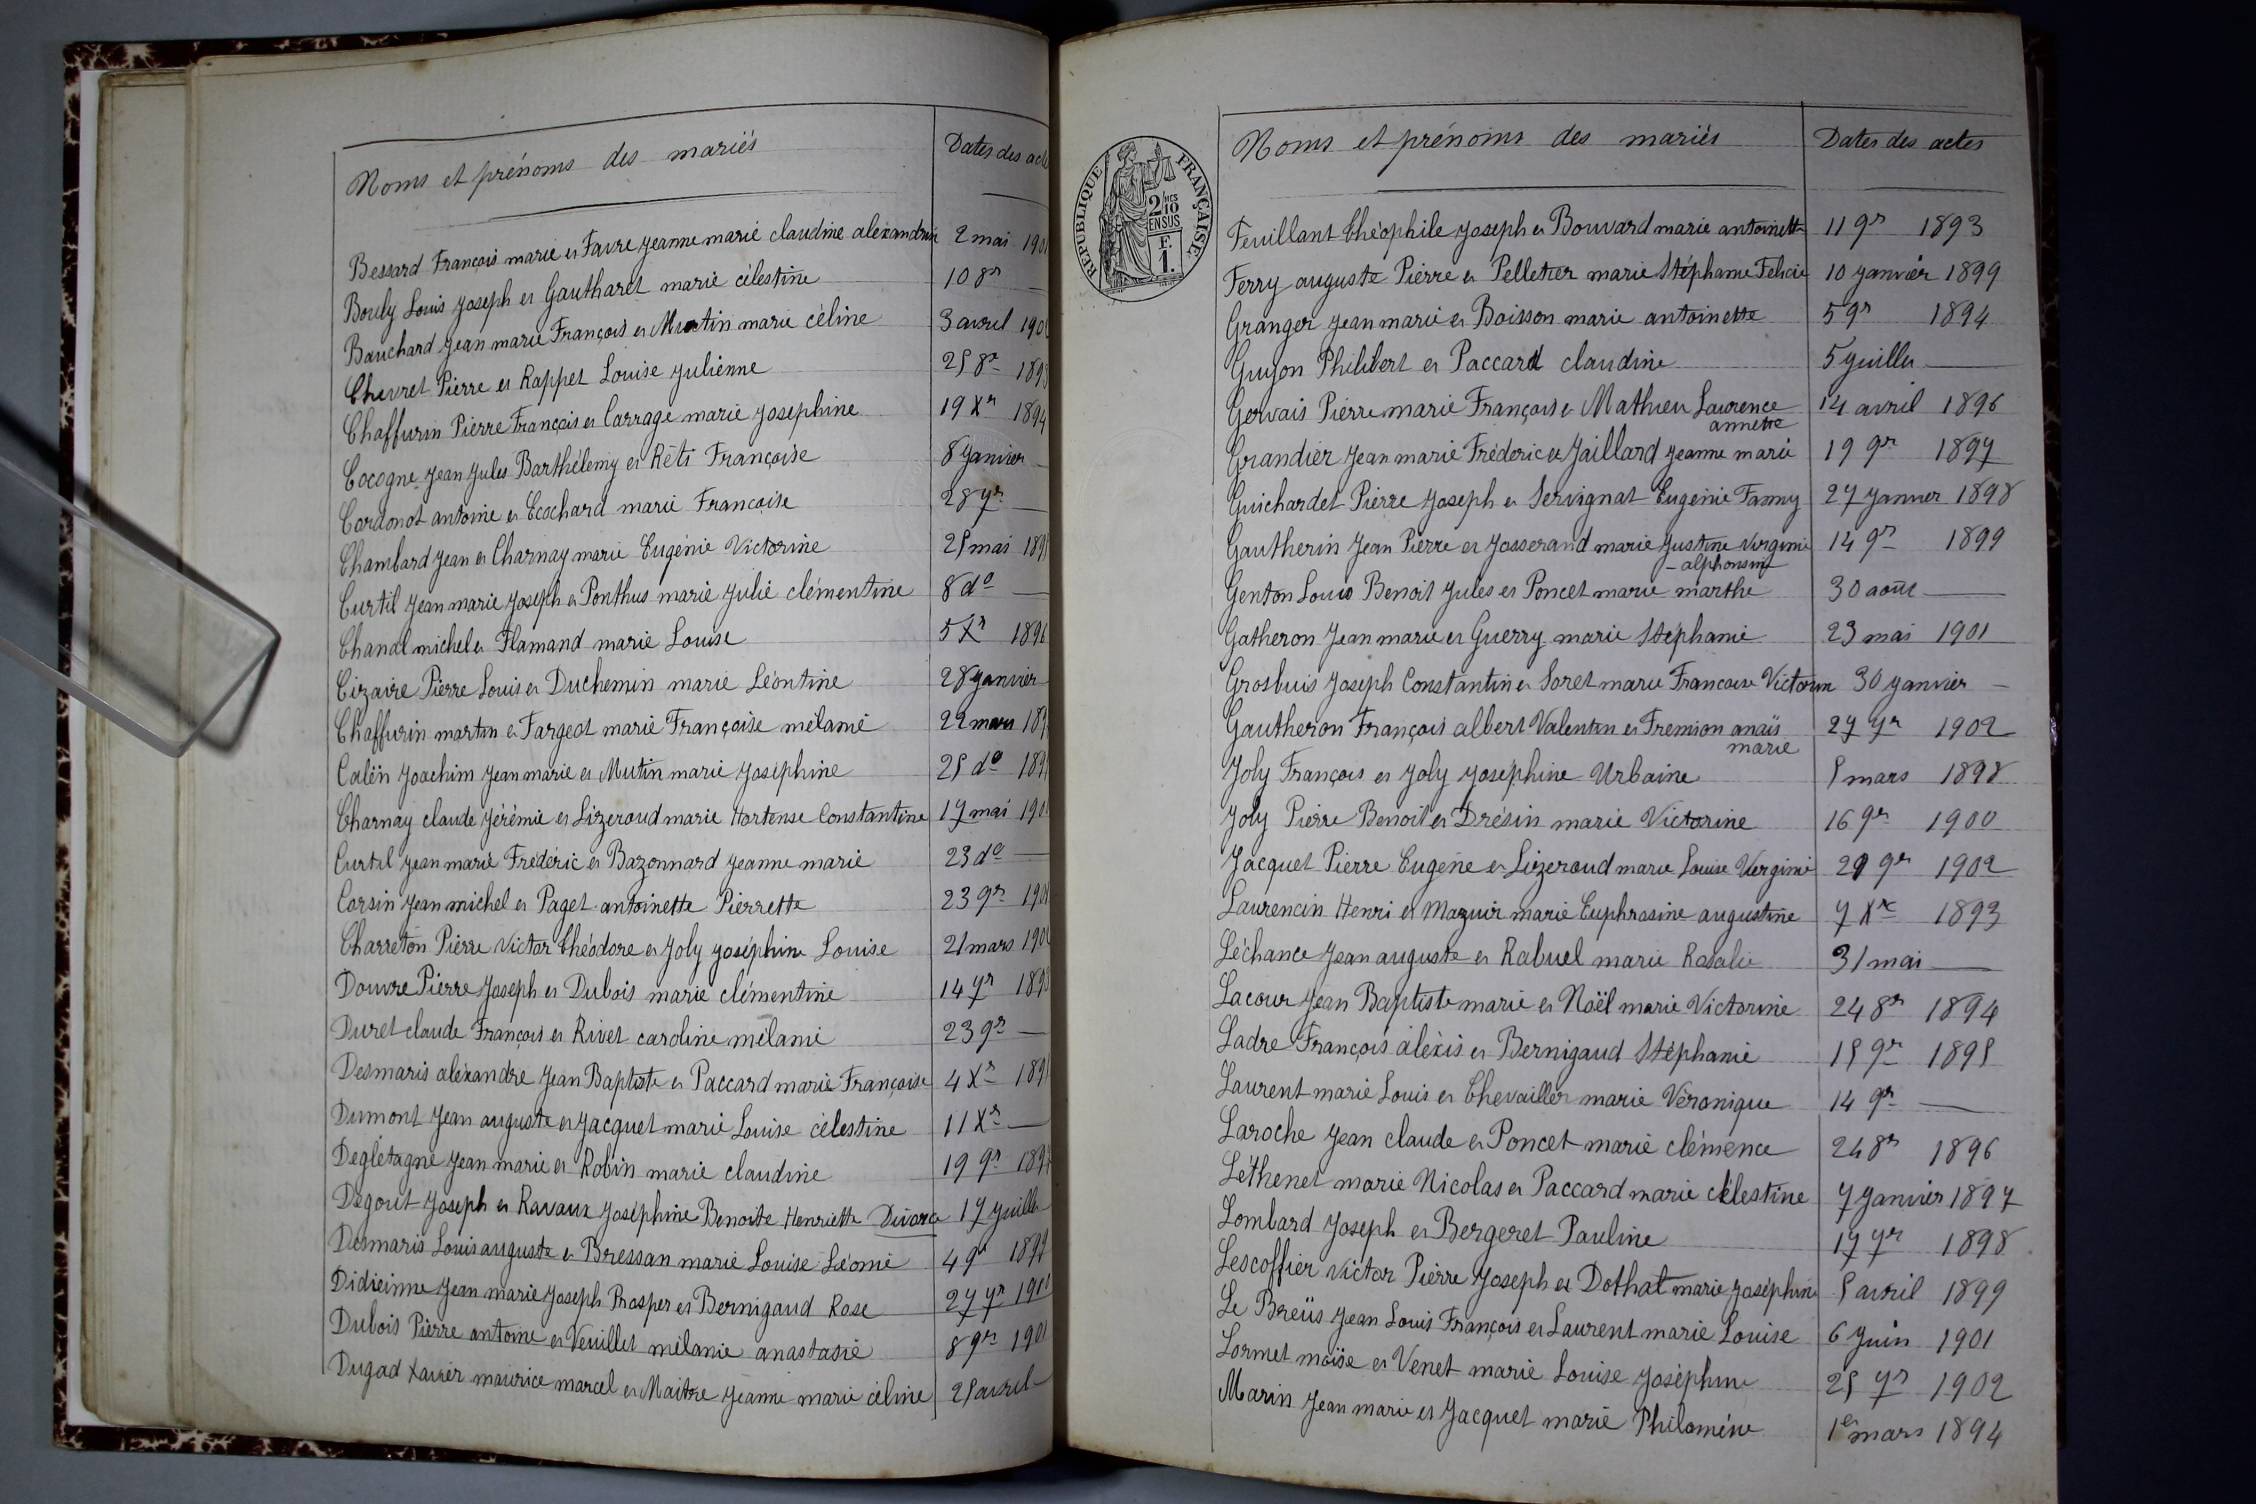 Noms et prénoms des mariés Dates des acte
Bessard François marie et Favre jeanne marie claudine alexandrine 2 mai 190
Bouly Louis joseph et Gautharet marie célestine 10 8re —
Bauchard jean marie François et Mutin marie céline 3 avril 190
Chevret Pierre et Rappet Louise julienne 25 8re 189
Chaffurin Pierre François et Carrage marie josephine 19 Xre 1894
Cocogne jean jules Barthélemy et Réti Françoise 8 janvier —
Cordonot antoine et Ecochard marie Francoise 28 7re —
Chambard jean et Charnay marie Eugénie Victorine 25 mai 189
Curtil jean marie joseph et Ponthus marie julie clémentine 8 do —
Chanal michel et Flamand marie Louise 5 Xre 1896
Cizaire Pierre Louis et Duchemin marie Léontine 28 janvier —
Chaffurin martin et Fargeot marie Françoise mélanie 22 mars 189
Calën joachim jean marie et Mutin marie joséphine 25 do 189
Charnay claude jérémie et Lizeroud marie Hortense Constantine 17 mai 190
Curtil jean marie Frédéric et Bazonnard jeanne marie 23 do —
Corsin jean michel et Paget antoinette Pierrette 23 9re 190
Charreton Pierre Victor théodore et Joly joséphine Louise 21 mars 190
Douvre Pierre joseph et Dubois marie clémentine 14 7re 1893
Duret claude François et Rivet caroline mélanie 23 9re —
Desmaris alexandre jean Baptiste et Paccard marie Françoise 4 Xre 189
Dumont jean auguste et jacquet marie Louise célestine 11 Xre —
Deglétagne jean marie et Robin marie claudine 19 9re 189
Dégout joseph et Ravaux joséphine Benoite Henriette Divorce 17 juillet
Desmaris Louis auguste et Bressan marie Louise Léomie 4 9re 1899
Didieinne jean marie joseph Prosper et Bernigaud Rose 27 7re 190
Dubois Pierre antoine et Veuillet mélanie anastasie 8 9re 190
Dugad Xavier maurice marcel et Maitre jeanne marie céline 25 avril —
REPUBLIQUE FRANÇAISE
2/10
EN SUS
F.
1.
Noms et prénoms des mariés Dates des actes
Feuillant théophile joseph et Bouvard marie antoinette 11 9re 1893
Ferry auguste Pierre et Pelletier marie Stéphanie Felicie 10 janvier 1899
Granger jean marie et Boisson marie antoinette 5 9re 1894
Guyon Philibert et Paccard claudine 5 juillet —
Gervais Pierre marie François et Mathieu Laurence 14 avril 1896
annette
Grandier jean marie Fréderic et Jaillard jeanne marie 19 9re 1897
Guichardet Pierre joseph et Servignat Eugénie Fanny 27 janvier 1898
Gautherin jean Pierre et josserand marie justine virginie 14 9re 1899
– alphonsine
Genton Louis Benoit jules et Poncet marie marthe 30 août —
Gatheron jean marie et Guerry marie Stéphanie 23 mai 1901
Grosbuis joseph Constantin et Soret marie Francoise Victorine 30 janvier —
Gautheron François albert Valentin et Fremion anaïs 27 7re 1902
marie
Joly François et Joly joséphine Urbaine 5 mars 1898
Joly Pierre Benoit et Drésin marie Victorine 16 9re 1900
Jacquet Pierre Eugène et Lizeroud marie Louise Virginie 29 9re 1902
Laurencin Henri et Mazuir marie Euphrosine augustine 7 Xre 1893
Léchance jean auguste et Rabuel marie Rosalie 31 mai —
Lacour jean Baptiste marie et Noël marie Victorine 24 8re 1894
Ladre François aléxis et Bernigaud Stéphanie 15 9re 1895
Laurent marie Louis et Chevailler marie Véronique 14 9re —
Laroche jean claude et Poncet marie clémence 24 8re 1896
Léthenet marie Nicolas et Paccard marie célestine 7 janvier 1897
Lombard joseph et Bergeret Pauline 17 7re 1898
Lescoffier victor Pierre joseph et Dothal marie joséphine 5 avril 1899
Le Breüs jean Louis François et Laurent marie Louise 6 juin 1901
Lormet moïse et Venet marie Louise joséphine 25 7re 1902
Marin jean marie et jacquet marie Philomène 1er mars 1894